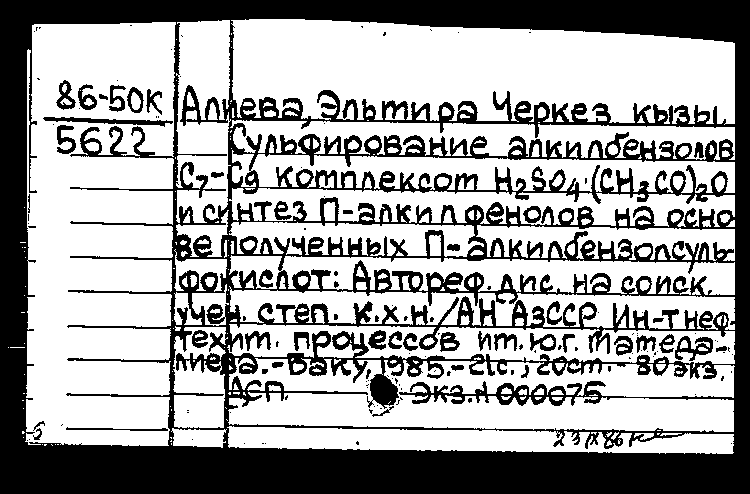 86-50К
5622
Алиева, Эльмира Черкез кызы.
Сульфирование алкилбензолов
С7-С9 комплексом H2SO4·(CH3CO)2O
и синтез П-алкилфенолов на осно-
ве полученных П-алкилбензолсуль-
фокислот: Автореф. дис. на соиск.
учен. степ. к.х.н./АН АзССР Ин-т неф-
техим. процессов им. Ю.Г. Мамеда-
лиева.-Баку, 1985.-21с.; 20см.- 80 экз.
ДСП. Экз.N 000075.
23 IX 86